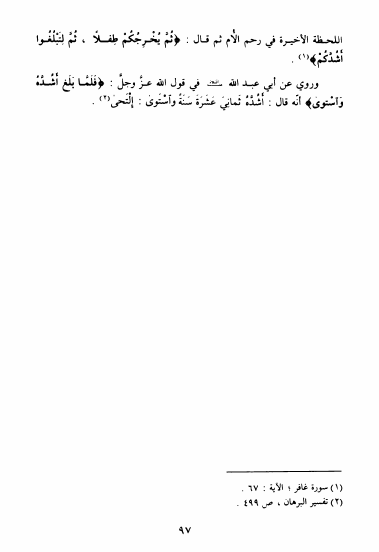 اللحظة الأخيرة في رحم الأُم ثم قال : ﴿ثُمَّ يُخْرِجُكُمْ طِفْلاً ، ثُمَّ لِتَبْلُغُوا
أَشُدَّكُمْ﴾(١) .
وروي عن أبي عبد الله في قول الله عزَّ وجلَّ : ﴿فَلَمَّا بَلَغَ أَشُدَّهُ
وَآسْتَوىٰ﴾ أنّه قال : أَشُدَّهُ ثَمانِيَ عَشَرَةَ سَنَةً وآسْتَوىٰ : إِلْتَحىٰ(٢) .
(١) سورة غافر ؛ الآية : ٦٧ .
(٢) تفسير البرهان ، ص ٤٩٩ .
٩٧